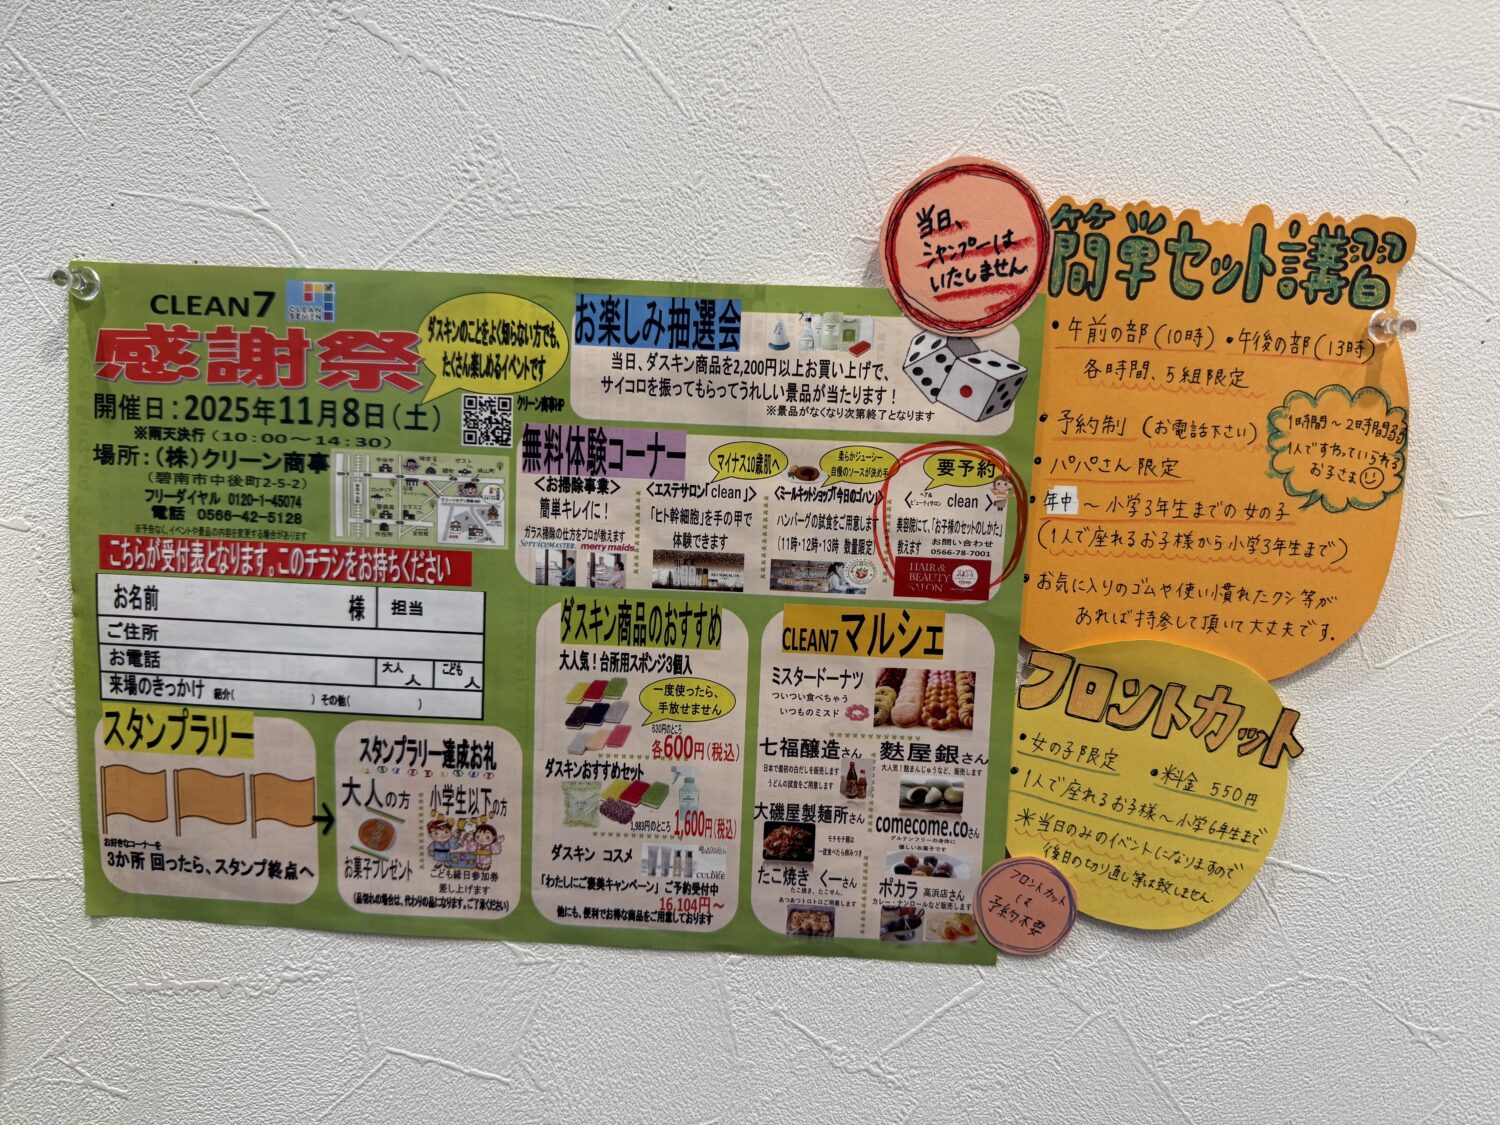 CLEAN7
CLEAN
SEVEN
感謝祭
ダスキンのことをよく知らない方でも、
たくさん楽しめるイベントです
開催日：2025年11月8日（土）
※雨天決行（10：00〜14：30）
クリーン商事HP
場所：（株）クリーン商事
（碧南市中後町2-5-2）
フリーダイヤル 0120-1-45074
電話 0566-42-5128
※予告なく、イベントや景品の内容を変更する場合があります
こちらが受付表となります。このチラシをお持ちください
お名前 様 担当
ご住所
お電話 大人 人 こども 人
来場のきっかけ 紹介( ) その他( )
スタンプラリー
お好きなコーナーを
3か所 回ったら、スタンプ終点へ
スタンプラリー達成お礼
大人の方
お菓子プレゼント
小学生以下の方
こども縁日参加券
差し上げます
（品切れの場合は、代わりの品になります。ご了承ください）
お楽しみ抽選会
当日、ダスキン商品を2,200円以上お買い上げで、
サイコロを振ってもらってうれしい景品が当たります！
※景品がなくなり次第終了となります
無料体験コーナー
＜お掃除事業＞
簡単キレイに！
ガラス掃除の仕方をプロが教えます
ServiceMASTER. merry maids
マイナス10歳肌へ
＜エステサロン「clean」＞
「ヒト幹細胞」を手の甲で
体験できます
柔らかジューシー
自慢のソースが決め手
＜ミールキットショップ「今日のゴハン」＞
ハンバーグの試食をご用意します
（11時・12時・13時 数量限定）
要予約
＜ヘア&ビューティサロン clean＞
美容院にて、「お子様のセットのしかた」
教えます
お問い合わせ
0566-78-7001
HAIR &
BEAUTY
SALON
ダスキン商品のおすすめ
大人気！台所用スポンジ3個入
一度使ったら、
手放せません
630円のところ
各600円（税込）
ダスキンおすすめセット
1,983円のところ 1,600円（税込）
ダスキン コスメ
「わたしにご褒美キャンペーン」ご予約受付中
16,104円〜
他にも、便利でお得な商品をご用意しております
CLEAN7 マルシェ
ミスタードーナツ
ついつい食べちゃう
いつものミスド
七福醸造さん
日本で最初の白だしを販売します
うどんの試食をご用意します
麩屋銀さん
大人気！麩まんじゅうなど、販売します
大磯屋製麺所さん
モチモチ麺は
一度食べたら病みつき
comecome.coさん
グルテンフリーの身体に
優しいお菓子です
たこ焼き くーさん
たこ焼き、たこせん、
あつあつトロトロご用意します
ポカラ 高浜店さん
カレー・ナンロールなど販売します
当日、
シャンプーは
いたしません
簡単セット講習
・午前の部（10時）・午後の部（13時）
各日時間、5組限定
・予約制（お電話下さい）
・パパさん限定
1時間〜2時間弱
1人ですわっていられる
お子さま
・年中〜小学3年生までの女の子
（1人で座れるお子様から小学3年生まで）
・お気に入りのゴムや使い慣れたクシ等が
あれば持参して頂いて大丈夫です.
フロントカット
・女の子限定 ・料金 550円
・1人で座れるお子様〜小学6年生まで
＊当日のみのイベントになりますので
後日の切り直し等は致しません.
フロントカット
は
予約不要